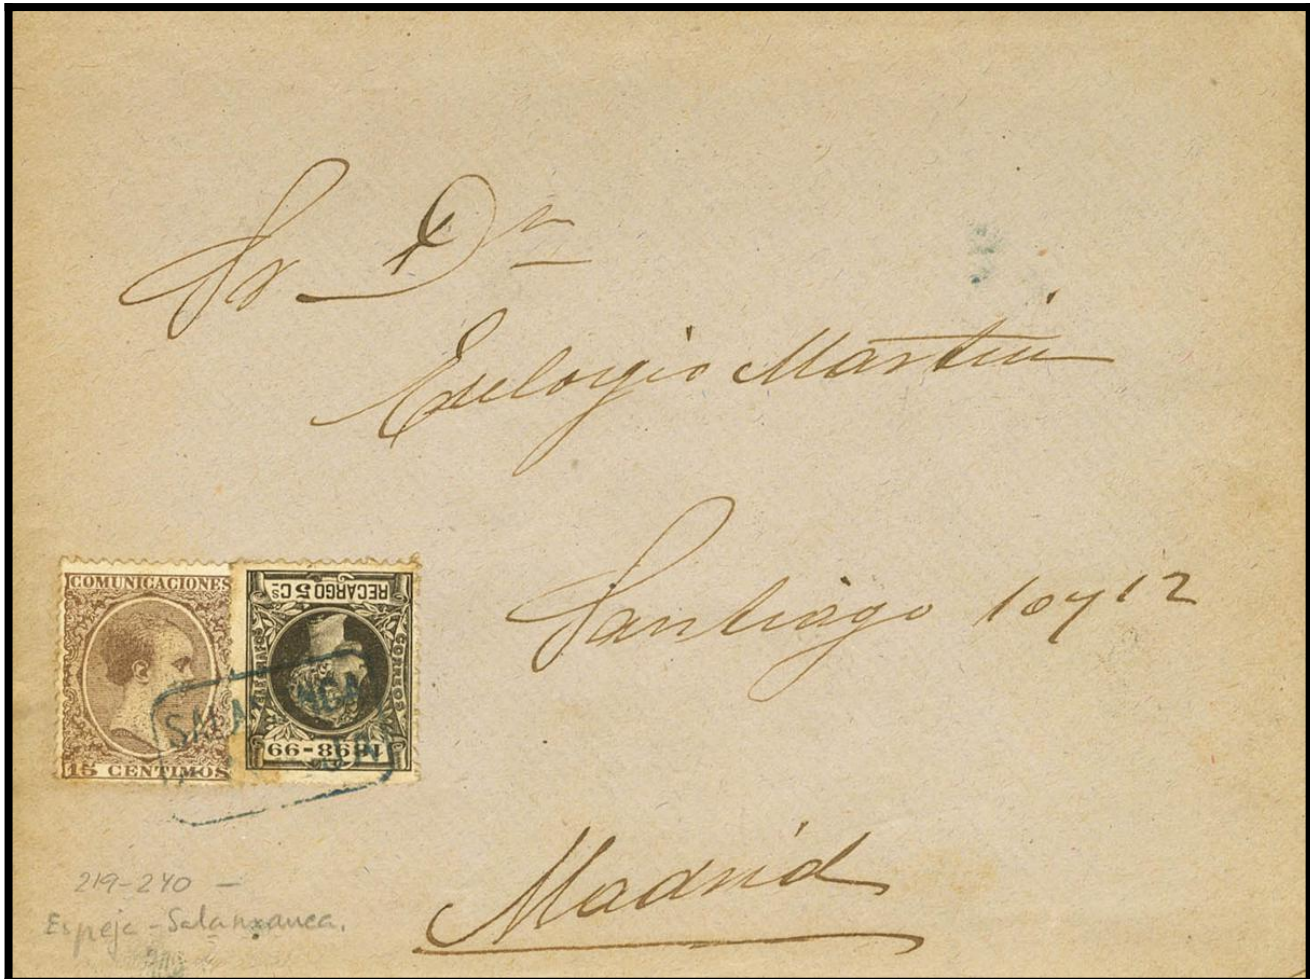 Sr Dn
Eulogio Martin
Santiago 10 y 12
Madrid
COMUNICACIONES
15 CENTIMOS
RECARGO 5 Cs
CORREOS
1898-99
SALAMANCA
219-240 —
Espeja - Salamanca.